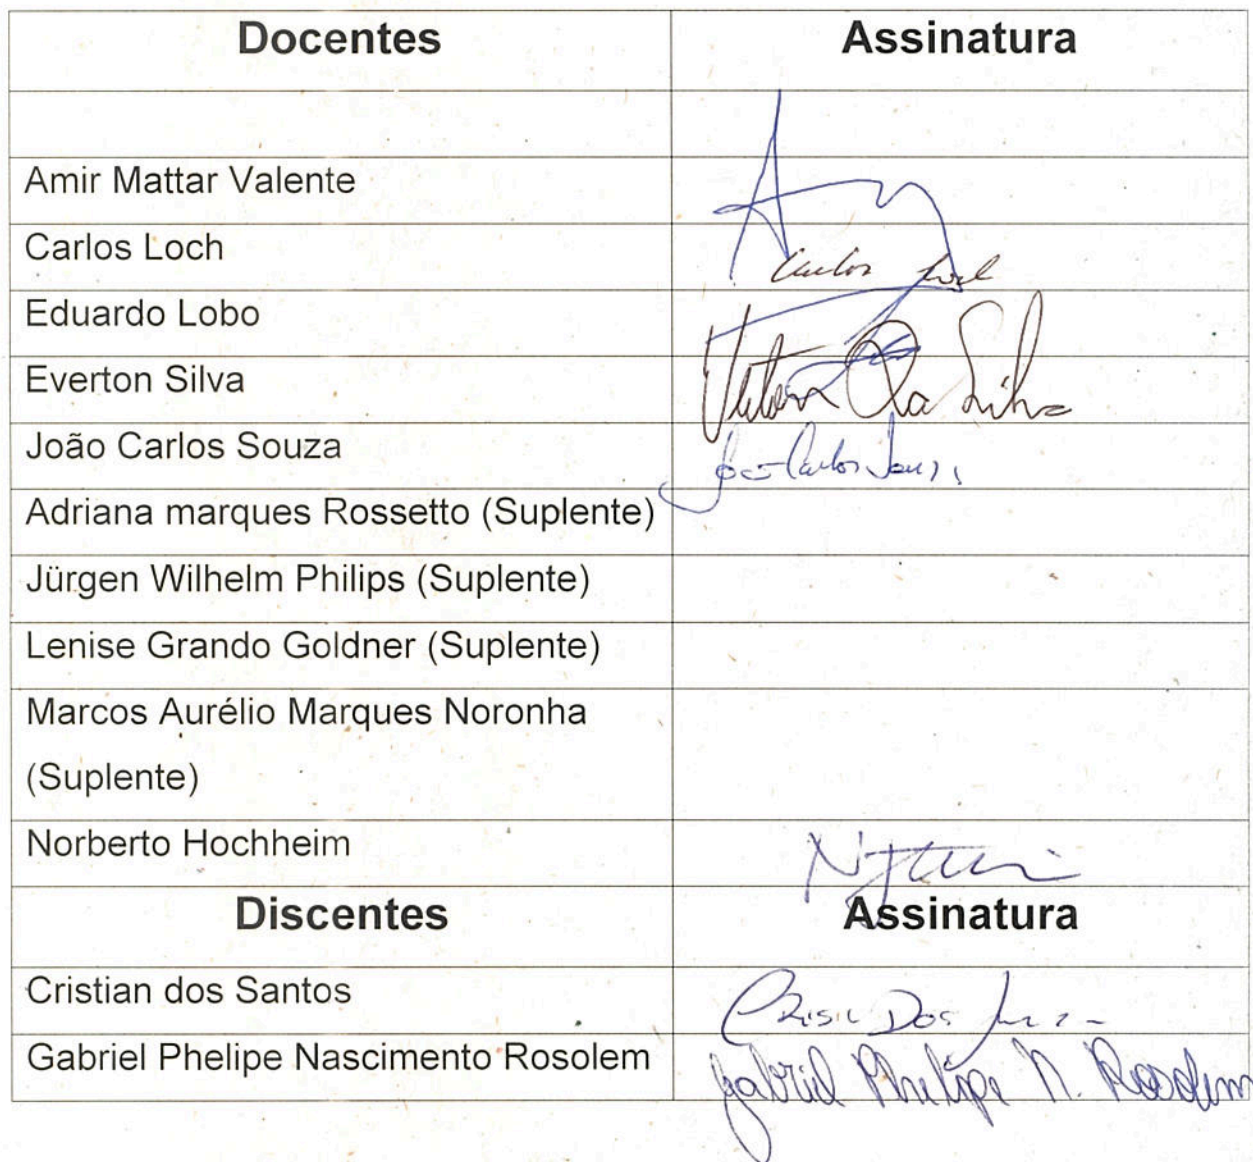 Docentes Assinatura
Amir Mattar Valente
Carlos Loch Carlos Loch
Eduardo Lobo
Everton Silva Everton da Silva
João Carlos Souza João Carlos Souza
Adriana marques Rossetto (Suplente)
Jürgen Wilhelm Philips (Suplente)
Lenise Grando Goldner (Suplente)
Marcos Aurélio Marques Noronha
(Suplente)
Norberto Hochheim
Discentes Assinatura
Cristian dos Santos Dos
Gabriel Phelipe Nascimento Rosolem Gabriel Phelipe N. Rosolem